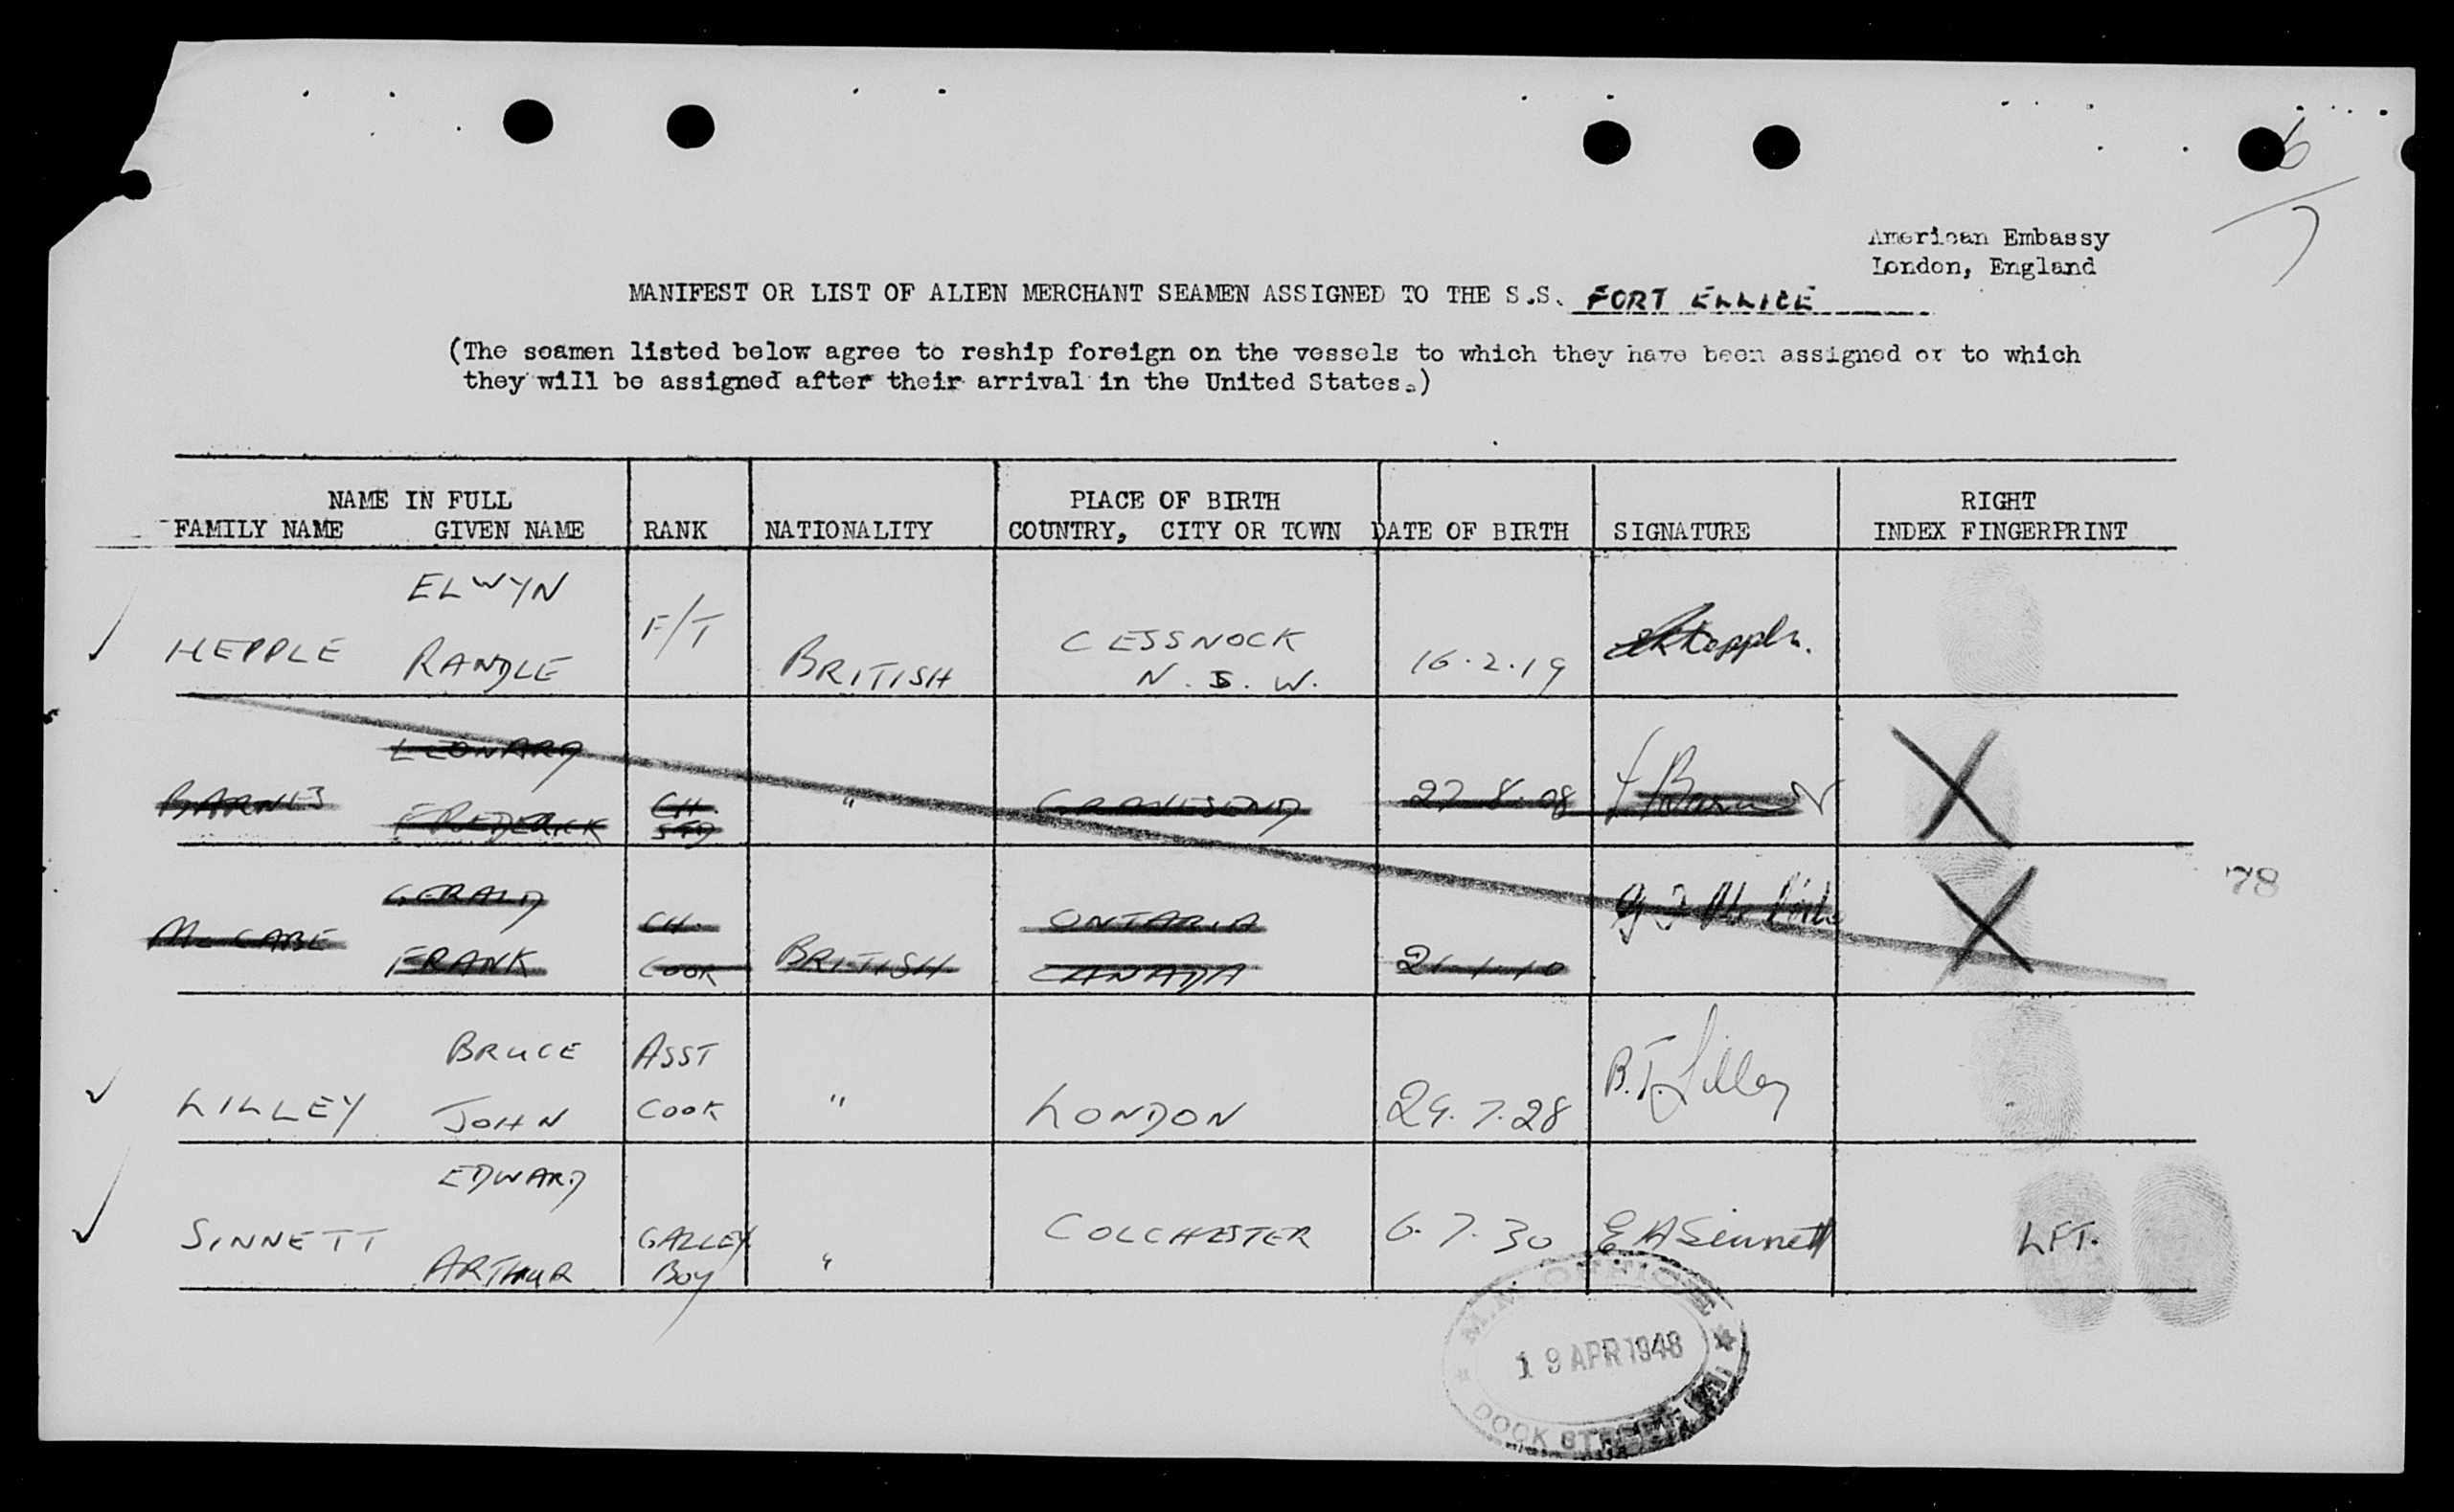 6
7
American Embassy
London, England
MANIFEST OR LIST OF ALIEN MERCHANT SEAMEN ASSIGNED TO THE S.S. FORT ELLICE
(The seamen listed below agree to reship foreign on the vessels to which they have been assigned or to which
they will be assigned after their arrival in the United States.)
NAME IN FULL PLACE OF BIRTH RIGHT
FAMILY NAME GIVEN NAME RANK NATIONALITY COUNTRY, CITY OR TOWN DATE OF BIRTH SIGNATURE INDEX FINGERPRINT
ELWYN
HEPPLE RANDLE F/T BRITISH CESSNOCK 16.2.19 Hepple.
N.S.W.
LEONARD
BARNES FREDERICK CH. STD " GRAVESEND 27.8.08 Barnes
GERALD CH. ONTARIA
McCABE FRANK COOK BRITISH CANADA 21.1.10 G F McCabe
78
BRUCE ASST
LILLEY JOHN COOK " LONDON 29.7.28 B.J. Lilley
EDWARD
SINNETT ARTHUR GALLEY BOY " COLCHESTER 6.7.30 E A Sinnett LFT.
M.M. OFFICE
19 APR 1948
DOCK STREET